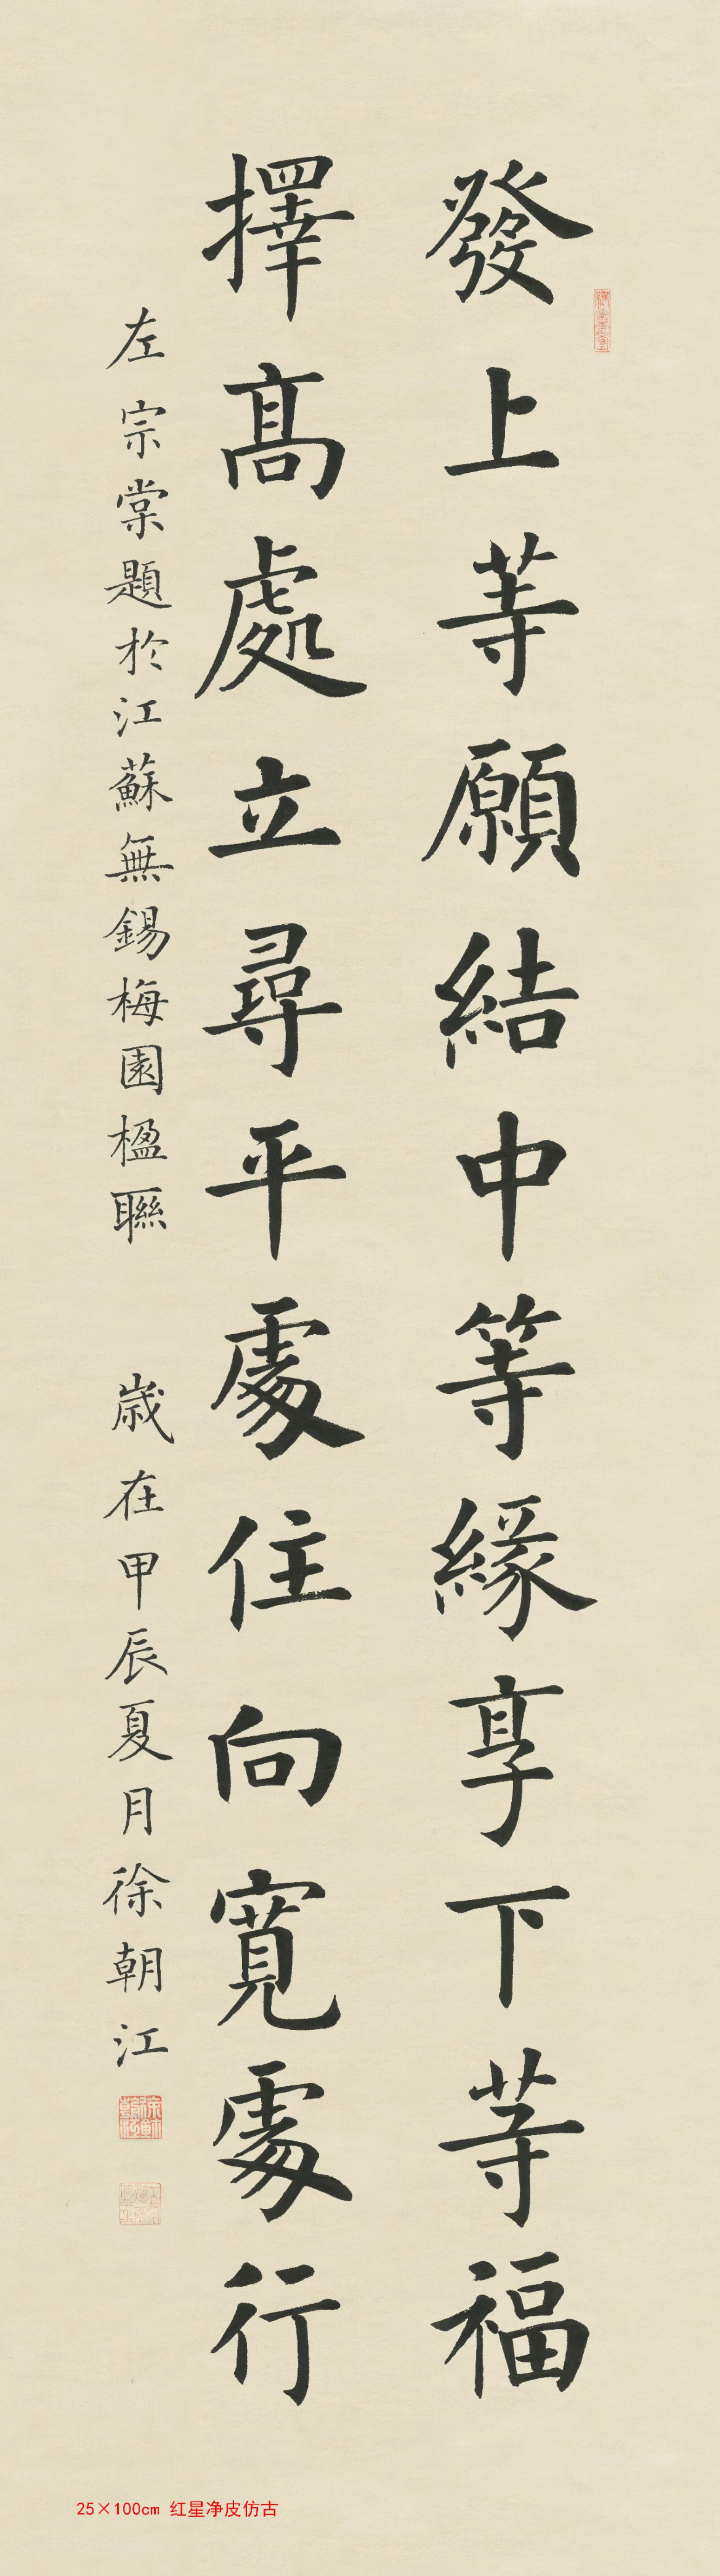 發上等願結中等緣享下等福
擇高處立尋平處住向寬處行
左宗棠題於江蘇無錫梅園楹聯 歲在甲辰夏月徐朝江
25×100cm 红星净皮仿古